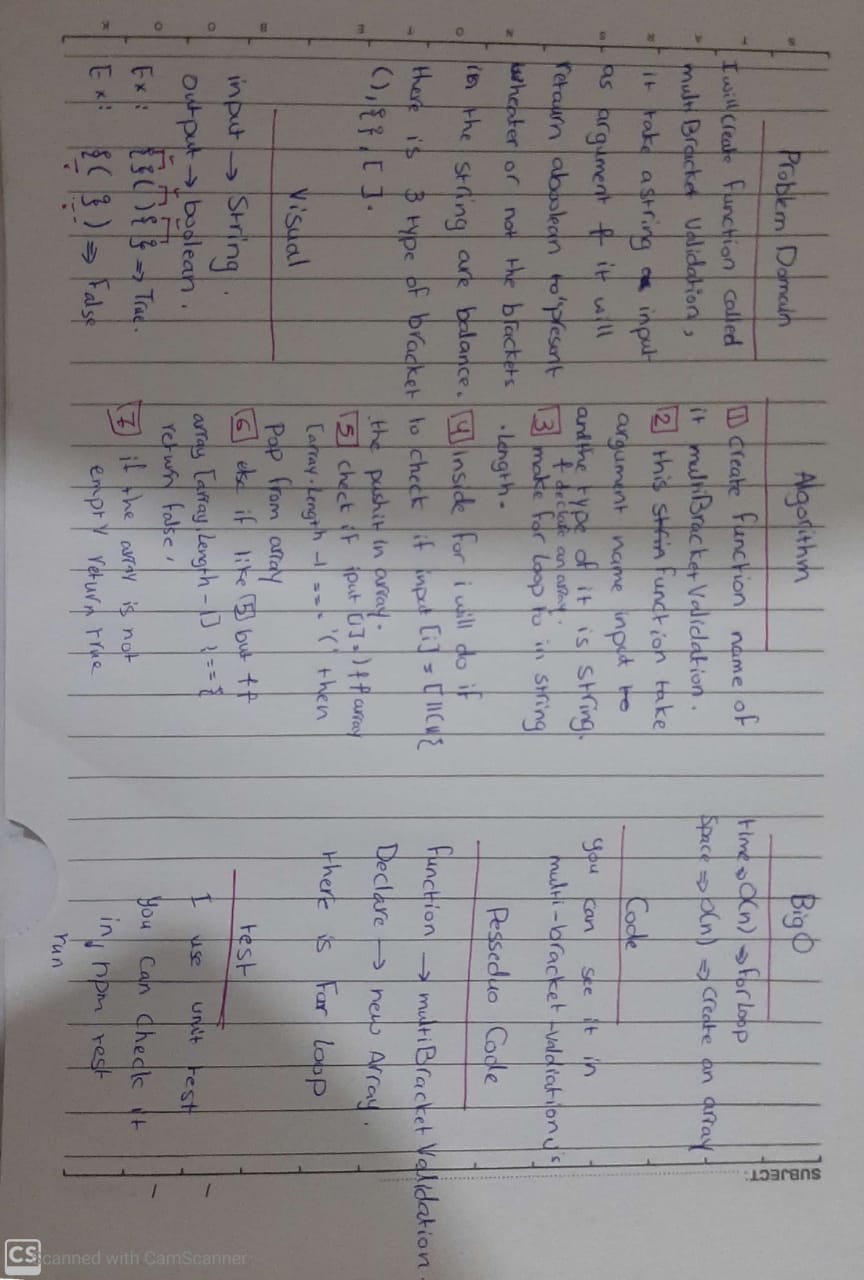 Problem Domain
I will create function called
multiBracket Validation,
it take a string input
as argument & it will
retaurn aboolean to present
wheater or not the brackets
in the string are balance.
there is 3 type of bracket
(), {}, [ ].
Visual
input → String.
output → boolean.
Ex: {}(){} => True.
Ex: {(}) => False
Algorithm
1 create function name of
it multiBracketValidation.
2 this function take
argument name input
and the type of it is string.
& declare an array.
3 make for loop to in string
.length.
4 inside for i will do if
to check if input [i] = [ || ( || {
the push it in array.
5 check if iput [i] = ) && array
[array.length -1 === '(' then
Pop from array
6 else if like 5 but &&
array [array.length -1] !== {
return false,
7 if the array is not
empty return true
Big O
time => O(n) => for loop
Space => O(n) => Create an array
Code
you can see it in
multi-bracket-valdiation.js
Pesseduo Code
function → multiBracket Validation.
Declare → new Array.
there is For loop
test
I use unit test
you can check it
in, npm test
run
SUBJECT:
CS Scanned with CamScanner